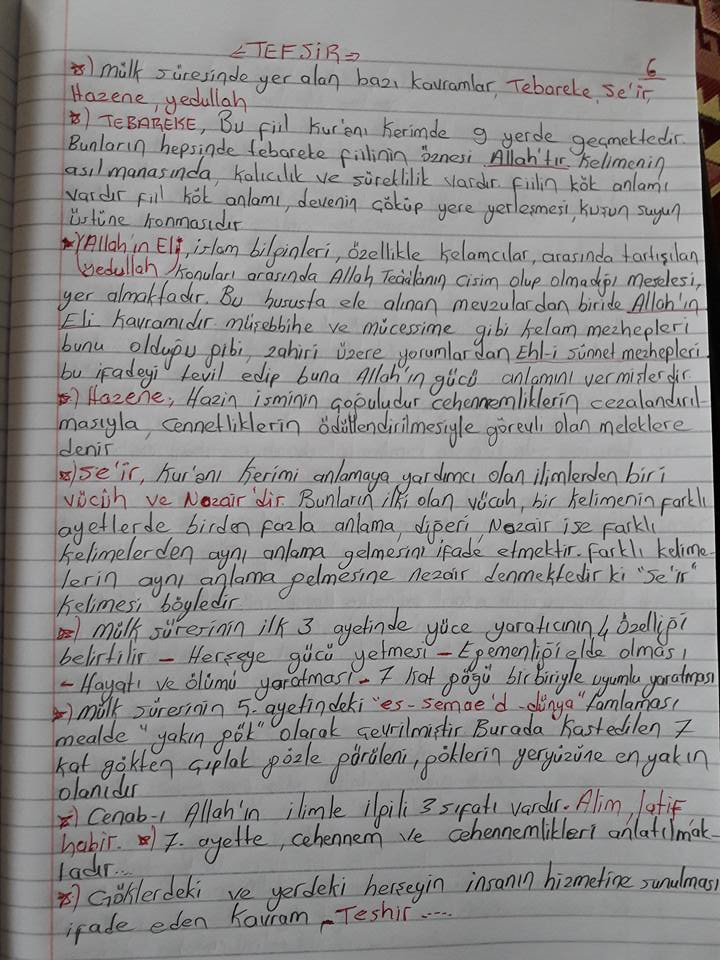 <TEFSİR>
6
*) mülk sûresinde yer alan bazı kavramlar, Tebareke, se'ir,
Hazene, yedullah
*) TEBAREKE, Bu fiil kur'anı kerimde 9 yerde geçmektedir.
Bunların hepsinde tebareke fiilinin öznesi Allah'tır. Kelimenin
asıl manasında, kalıcılık ve süreklilik vardır. fiilin kök anlamı
vardır fiil kök anlamı, devenin çöküp yere yerleşmesi, kuşun suyun
üstüne konmasıdır
*) Allah'ın Eli, islam bilginleri, özellikle kelamcılar, arasında tartışılan
yedullah konuları arasında Allah Teâlânın cisim olup olmadığı meselesi,
yer almaktadır. Bu hususta ele alınan mevzulardan biride Allah'ın
Eli kavramıdır. müşebbihe ve mücessime gibi kelam mezhepleri
bunu olduğu gibi, zahiri üzere yorumlardan Ehl-i sünnet mezhepleri
bu ifadeyi tevil edip buna Allah'ın gücü anlamını vermişlerdir.
*) Hazene, Hazin isminin çoğuludur cehennemliklerin cezalandırıl-
masıyla, cennetliklerin ödüllendirilmesiyle görevli olan meleklere
denir
*) se'ir, kur'anı kerimi anlamaya yardımcı olan ilimlerden biri
vücûh ve Nezair'dir. Bunların ilki olan vücuh, bir kelimenin farklı
ayetlerde birden fazla anlama, diğeri, Nezair ise farklı
kelimelerden aynı anlama gelmesini ifade etmektir. farklı kelime-
lerin aynı anlama gelmesine nezair denmektedir ki "se'ir"
kelimesi böyledir
*) mülk sûresinin ilk 3 ayetinde yüce yaratıcının 4 özelliği
belirtilir - Herşeye gücü yetmesi - Egemenliği elde olması
- Hayatı ve ölümü yaratması - 7 kat göğü birbiriyle uyumlu yaratması
*) mülk sûresinin 5. ayetindeki "es-semae'd-dünya" tamlaması
mealde "yakın gök" olarak çevrilmiştir Burada kastedilen 7
kat gökten çıplak gözle görüleni, göklerin yeryüzüne en yakın
olanıdır
*) Cenab-ı Allah'ın ilimle ilgili 3 sıfatı vardır. Alim, latif
habir. *) 7. ayette, cehennem ve cehennemlikleri anlatılmak-
tadır...
*) Göklerdeki ve yerdeki herşeyin insanın hizmetine sunulması
ifade eden kavram - Teshir ....